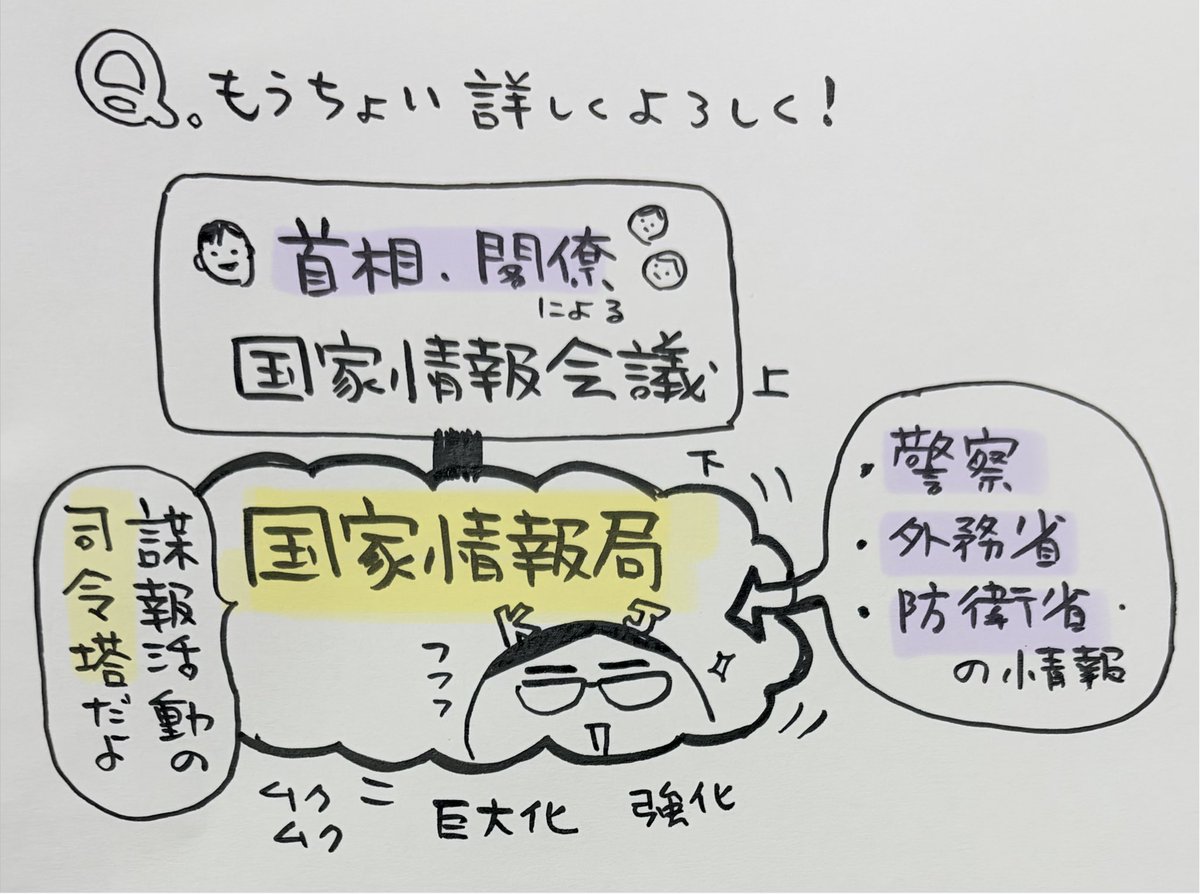 Q.もうちょい詳しくよろしく!
首相.閣僚
による
国家情報会議
上
下
国家情報局
諜報活動の
司令塔だよ
フフフ
・警察
・外務省
・防衛省
の情報
ムク
ムク
= 巨大化 強化